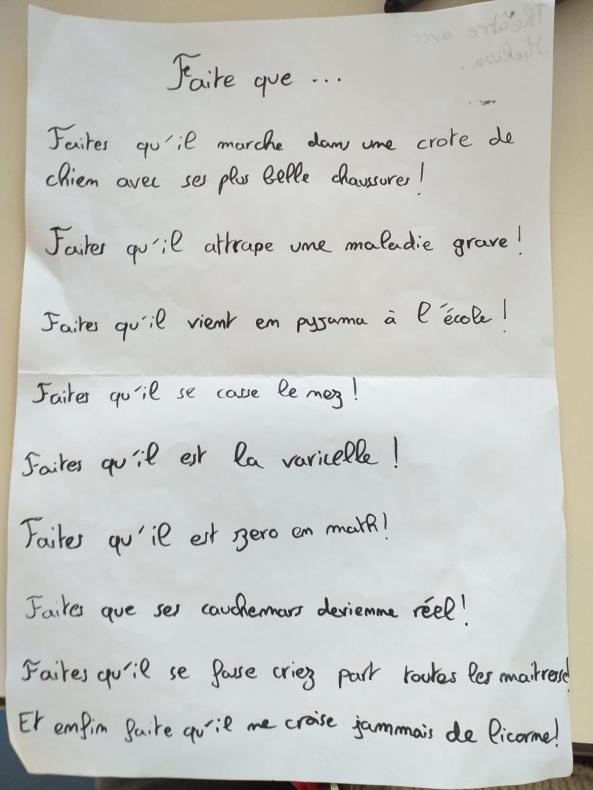 Théâtre avec
Melissa.
Faite que ...
Faites qu'il marche dans une crote de
chien avec ses plus belle chaussures !
Faites qu'il attrape une maladie grave !
Faites qu'il vient en pyjama à l'école !
Faites qu'il se casse le nez !
Faites qu'il est la varicelle !
Faites qu'il est zero en math !
Faites que ses cauchemars devienne réel !
Faites qu'il se fasse criez part toutes les maitresse!
Et enfin faite qu'il ne croise jammais de licorne!